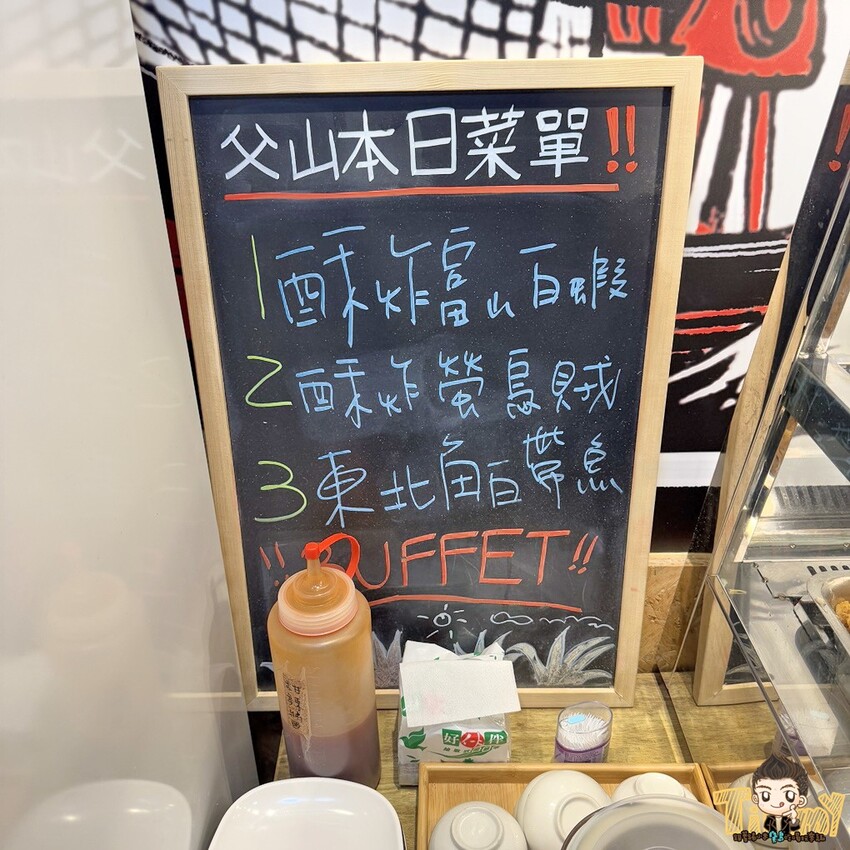 父山本日菜單!!
1酥炸富山白蝦
2酥炸螢烏賊
3東北角白帶魚
!!BUFFET!!